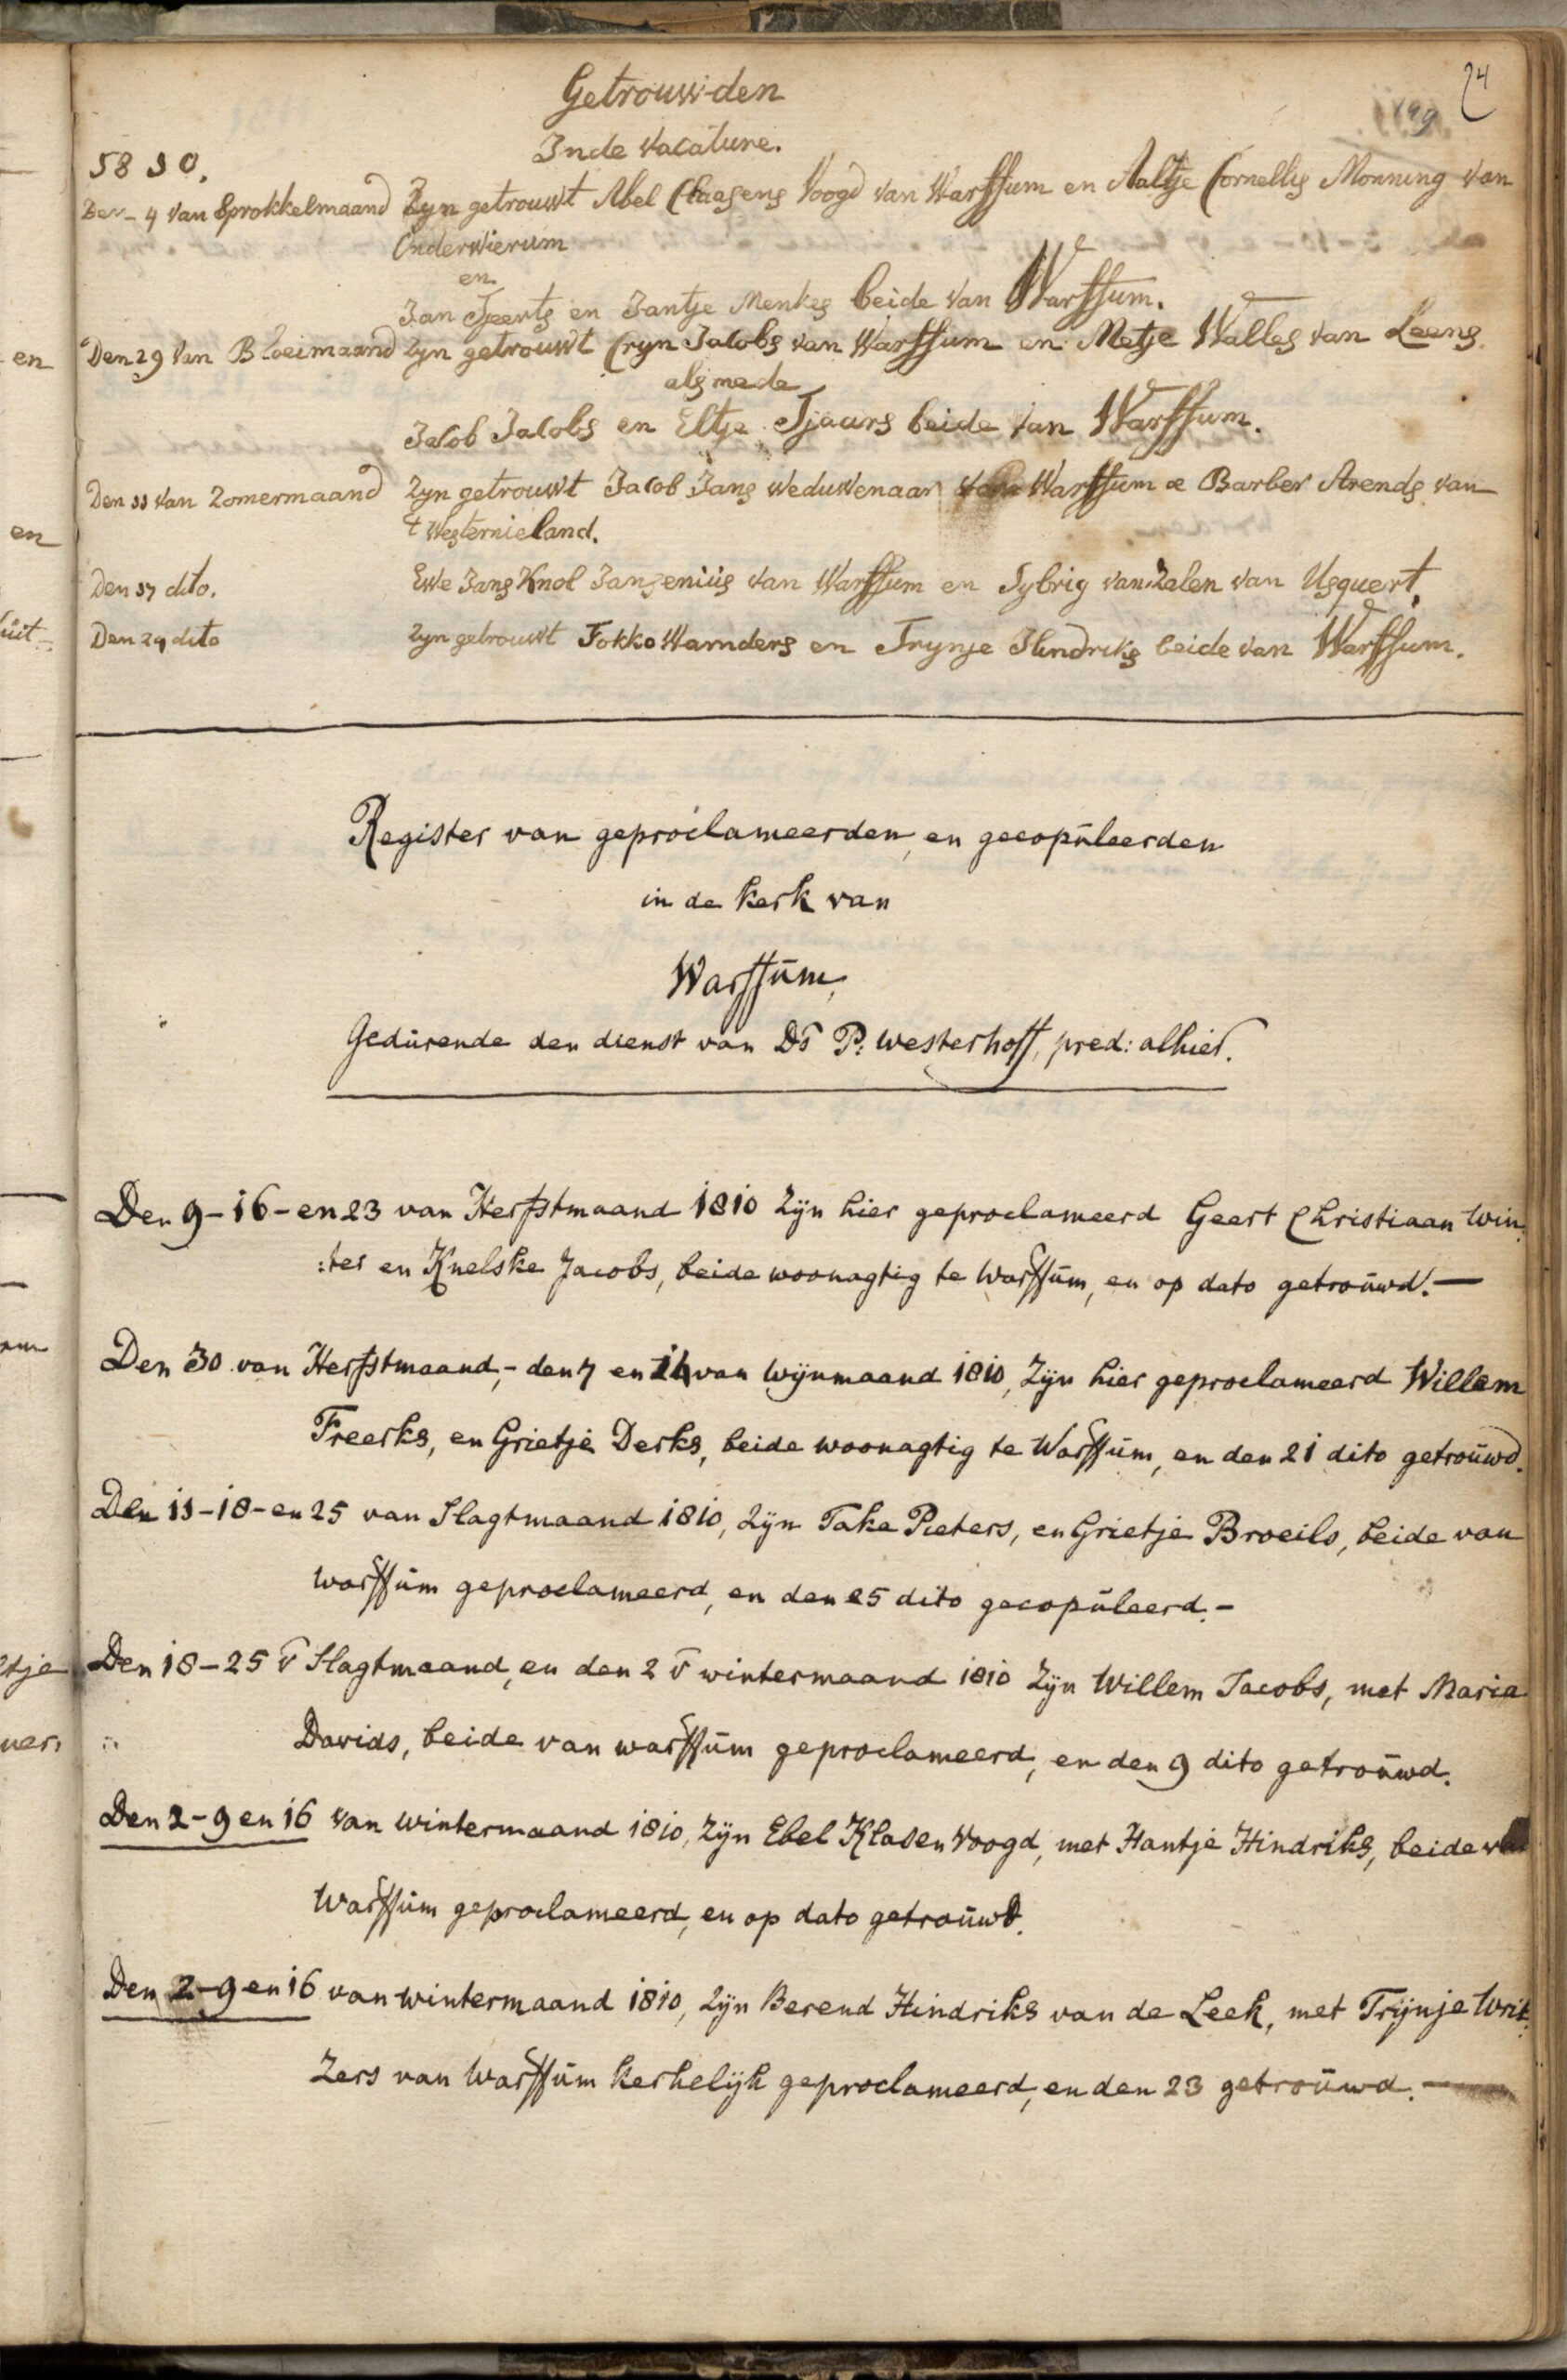 24
Getrouwden
Inde vacature.
1810.
Den 4 van Sprokkelmaand Zyn getrouwt Abel Claasens Voogd van Warffum en Aaltje Cornellis Monning van
Onderwierum
en
Jan Tjeerts en Jantje Menkes beide van Warffum.
Den 29 Van Bloeimaand Zyn getrouwt Cryn Jacobs van Warffum en Metje Walles van Leens.
als mede
Jacob Jacobs en Eltje Tjaars beide van Warffum.
Den 11 van Zomermaand Zyn getrouwt Jacob Jans weduwenaar van Warffum & Barber Arends van
t Westernieland.
Den 17 dito. Ewe Jans Knol Jansenius van Warffum en Sybrig van Zalen van Usquert.
Den 24 dito Zyn getrouwt Fokko Warnders en Trynje Hindriks beide van Warffum.
Register van geproclameerden, en gecopuleerden
in de kerk van
Warffum,
Gedurende den dienst van Ds P. Westerhoff, pred: alhier.
Den 9-16-en 23 van Herfstmaand 1810 Zijn hier geproclameerd Geert Christiaan Win
:ter en Knelske Jacobs, beide woonagtig te Warffum, en op dato getrouwd.—
Den 30 van Herfstmaand,- den 7 en 14 van Wijnmaand 1810, Zijn hier geproclameerd Willem
Freerks, en Grietje Derks, beide woonagtig te Warffum, en den 21 dito getrouwd.
Den 11-18-en 25 van Slagtmaand 1810, Zijn Take Pieters, en Grietje Broeils, beide van
Warffum geproclameerd, en den 25 dito gecopuleerd.-
Den 18-25 v Slagtmaand, en den 2 v wintermaand 1810 Zijn Willem Jacobs, met Maria
Davids, beide van warffum geproclameerd, en den 9 dito getrouwd.
Den 2-9 en 16 van wintermaand 1810, Zijn Ebel Klasen Voogd, met Hantje Hindriks, beide van
Warffum geproclameerd, en op dato getrouwd.
Den 2-9 en 16 van wintermaand 1810, Zijn Berend Hindriks van de Leek, met Trijnje Writ:
Zers van Warffum kerkelijk geproclameerd, en den 23 getrouwd.—